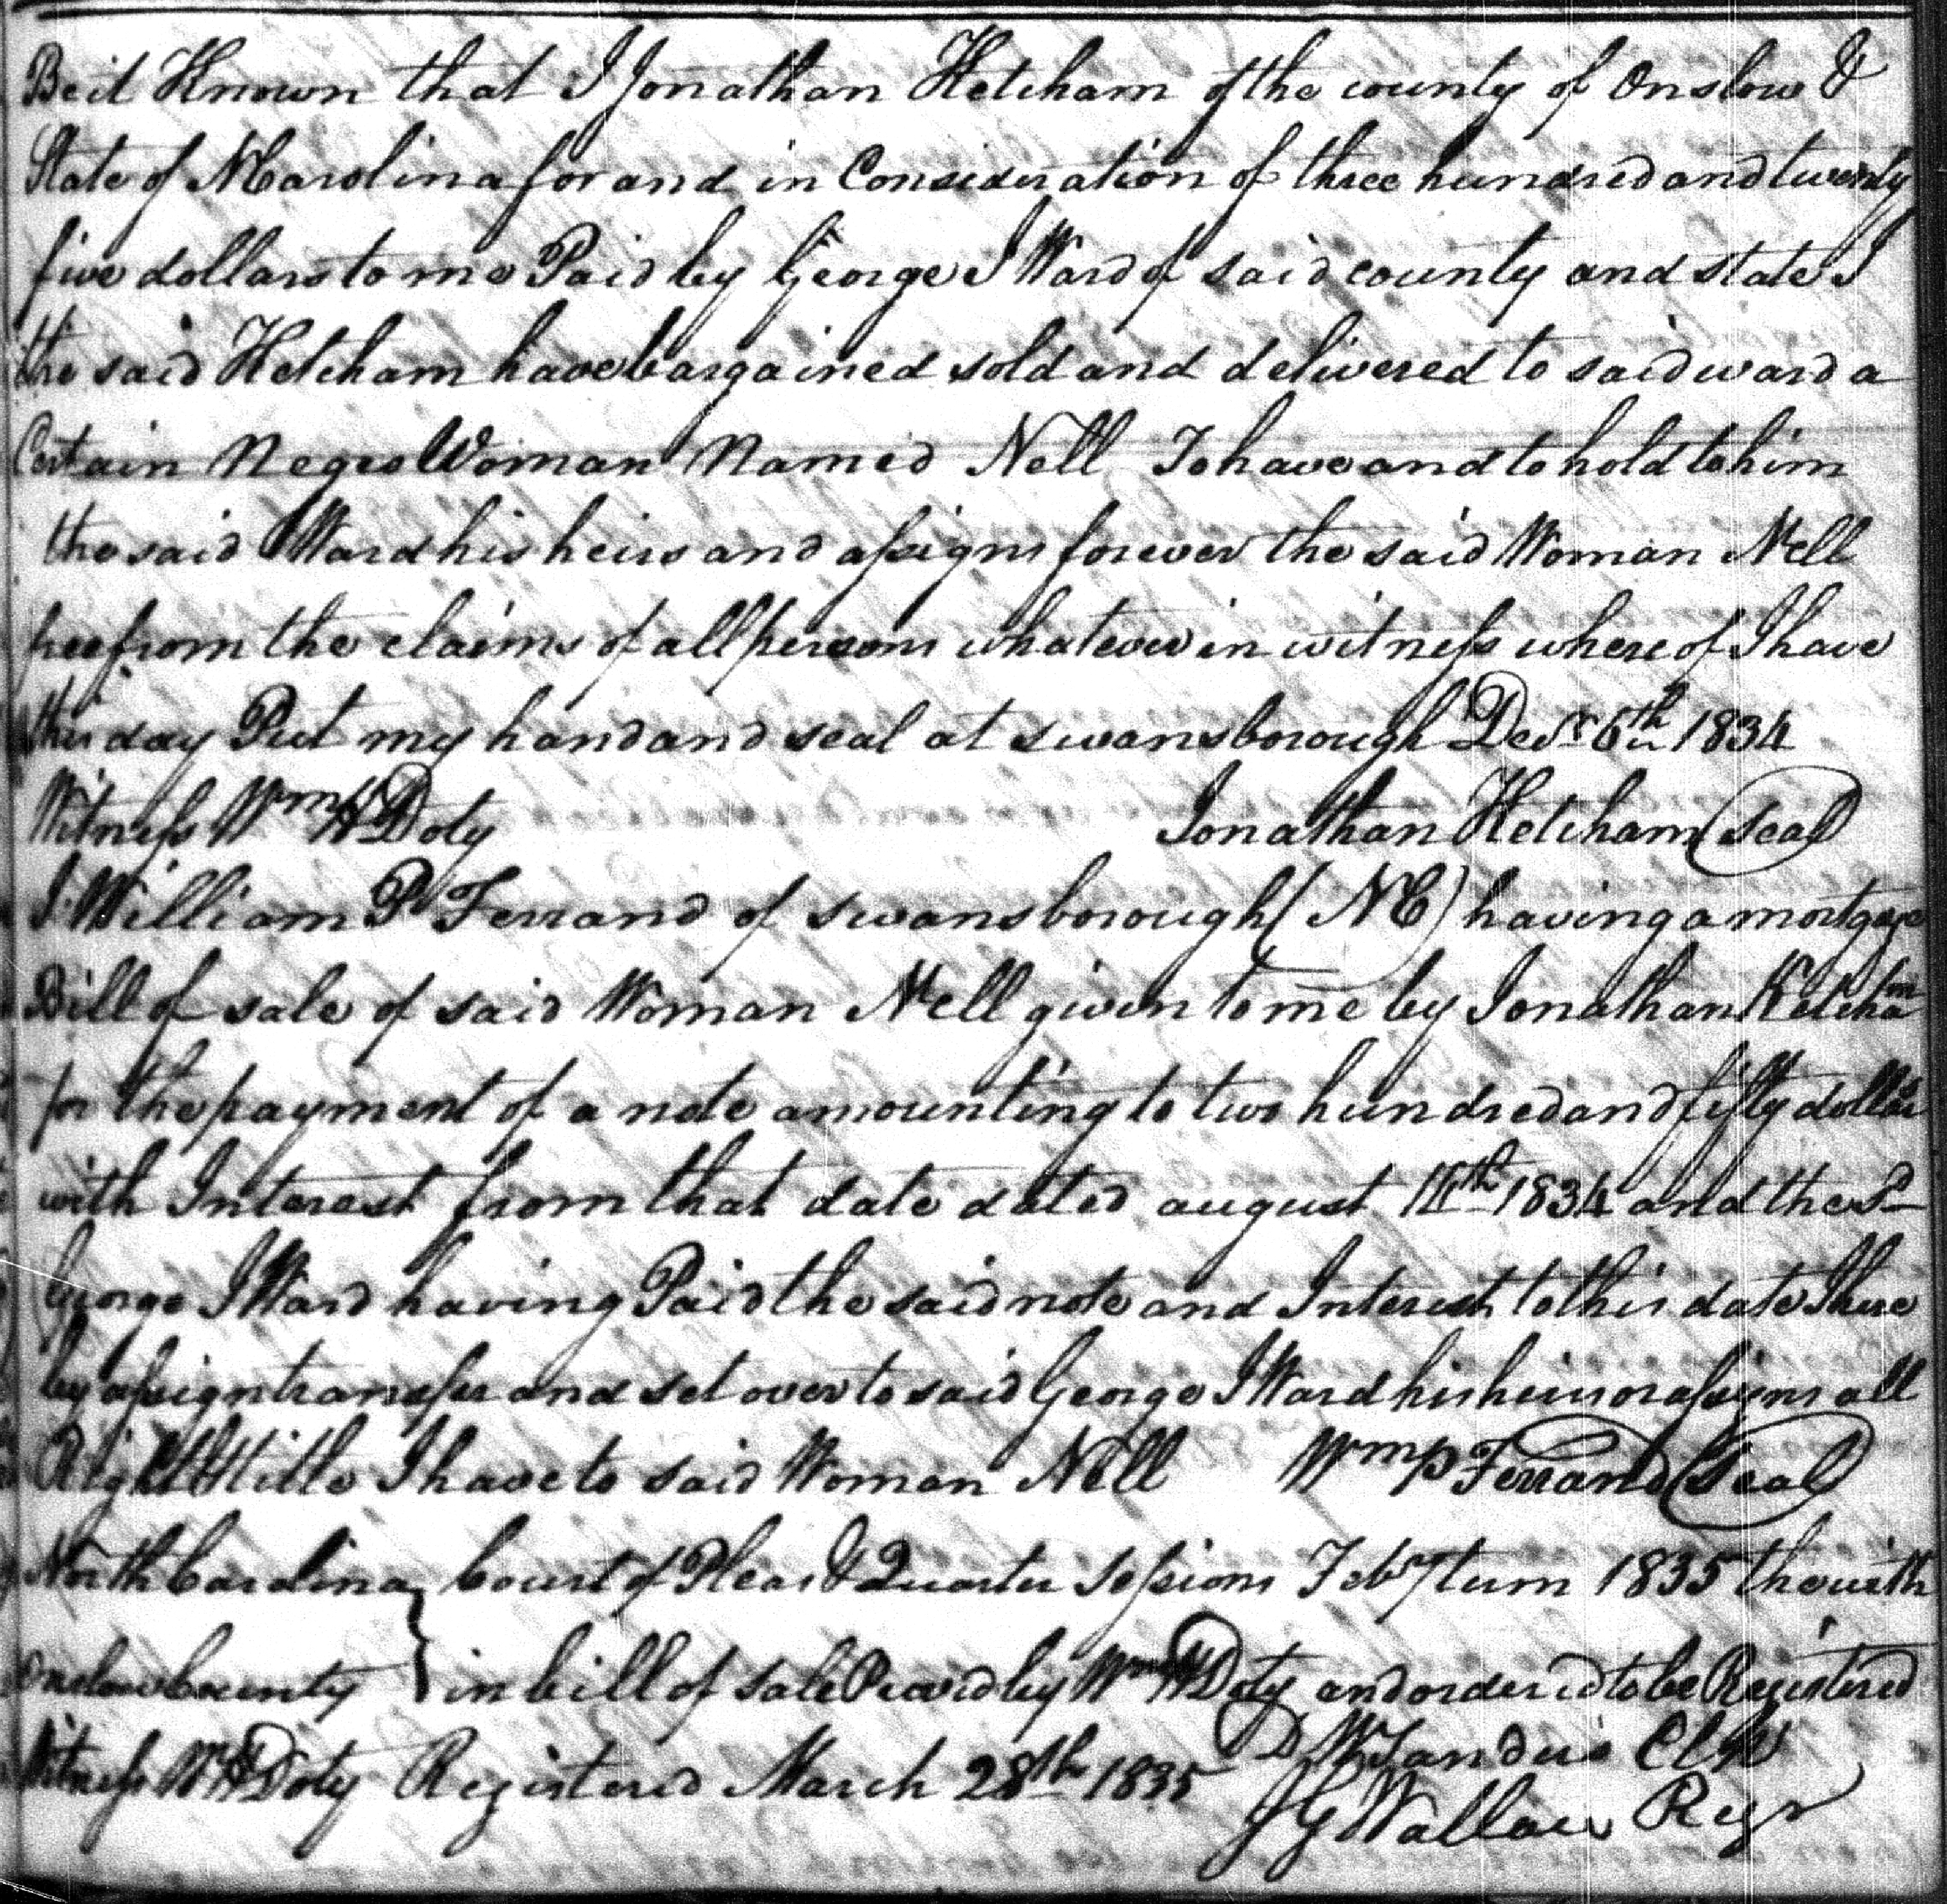 Be it Known that I Jonathan Ketcham of the county of Onslow &
State of N Carolina for and in Consideration of three hundred and twenty
five dollars to me Paid by George J Ward of said county and state I
the said Ketcham have bargained sold and delivered to said ward a
Certain Negro Woman Named Nell To have and to hold to him
the said Ward his heirs and assigns forever the said Woman Nell
free from the claims of all persons whatever in witness where of I have
this day Put my hand and seal at swansborough Decr 6th 1834
Witness Wm H Doty Jonathan Ketcham (Seal)
I William P Ferrand of swansborough (NC) having a mortgage
Bill of sale of said Woman Nell given to me by Jonathan Ketcham
for the payment of a note amounting to two hundred and fifty dollars
with Interest from that date dated august 1834 and the Sd
George J Ward having Paid the said note and Interest to this date I here
by assign transfer and set over to said George J Ward his heirs or assigns all
Right & title I have to said Woman Nell Wm P Ferrand (Seal)
North Carolina } Court of Pleas & Quarter sessions Feby term 1835 the with
Onslow County } in bill of sale Proved by Wm H Doty and ordered to be Registered
Witness Wm H Doty Registered March 28th 1835 D W Sanders Clk
J G Wallace Regr